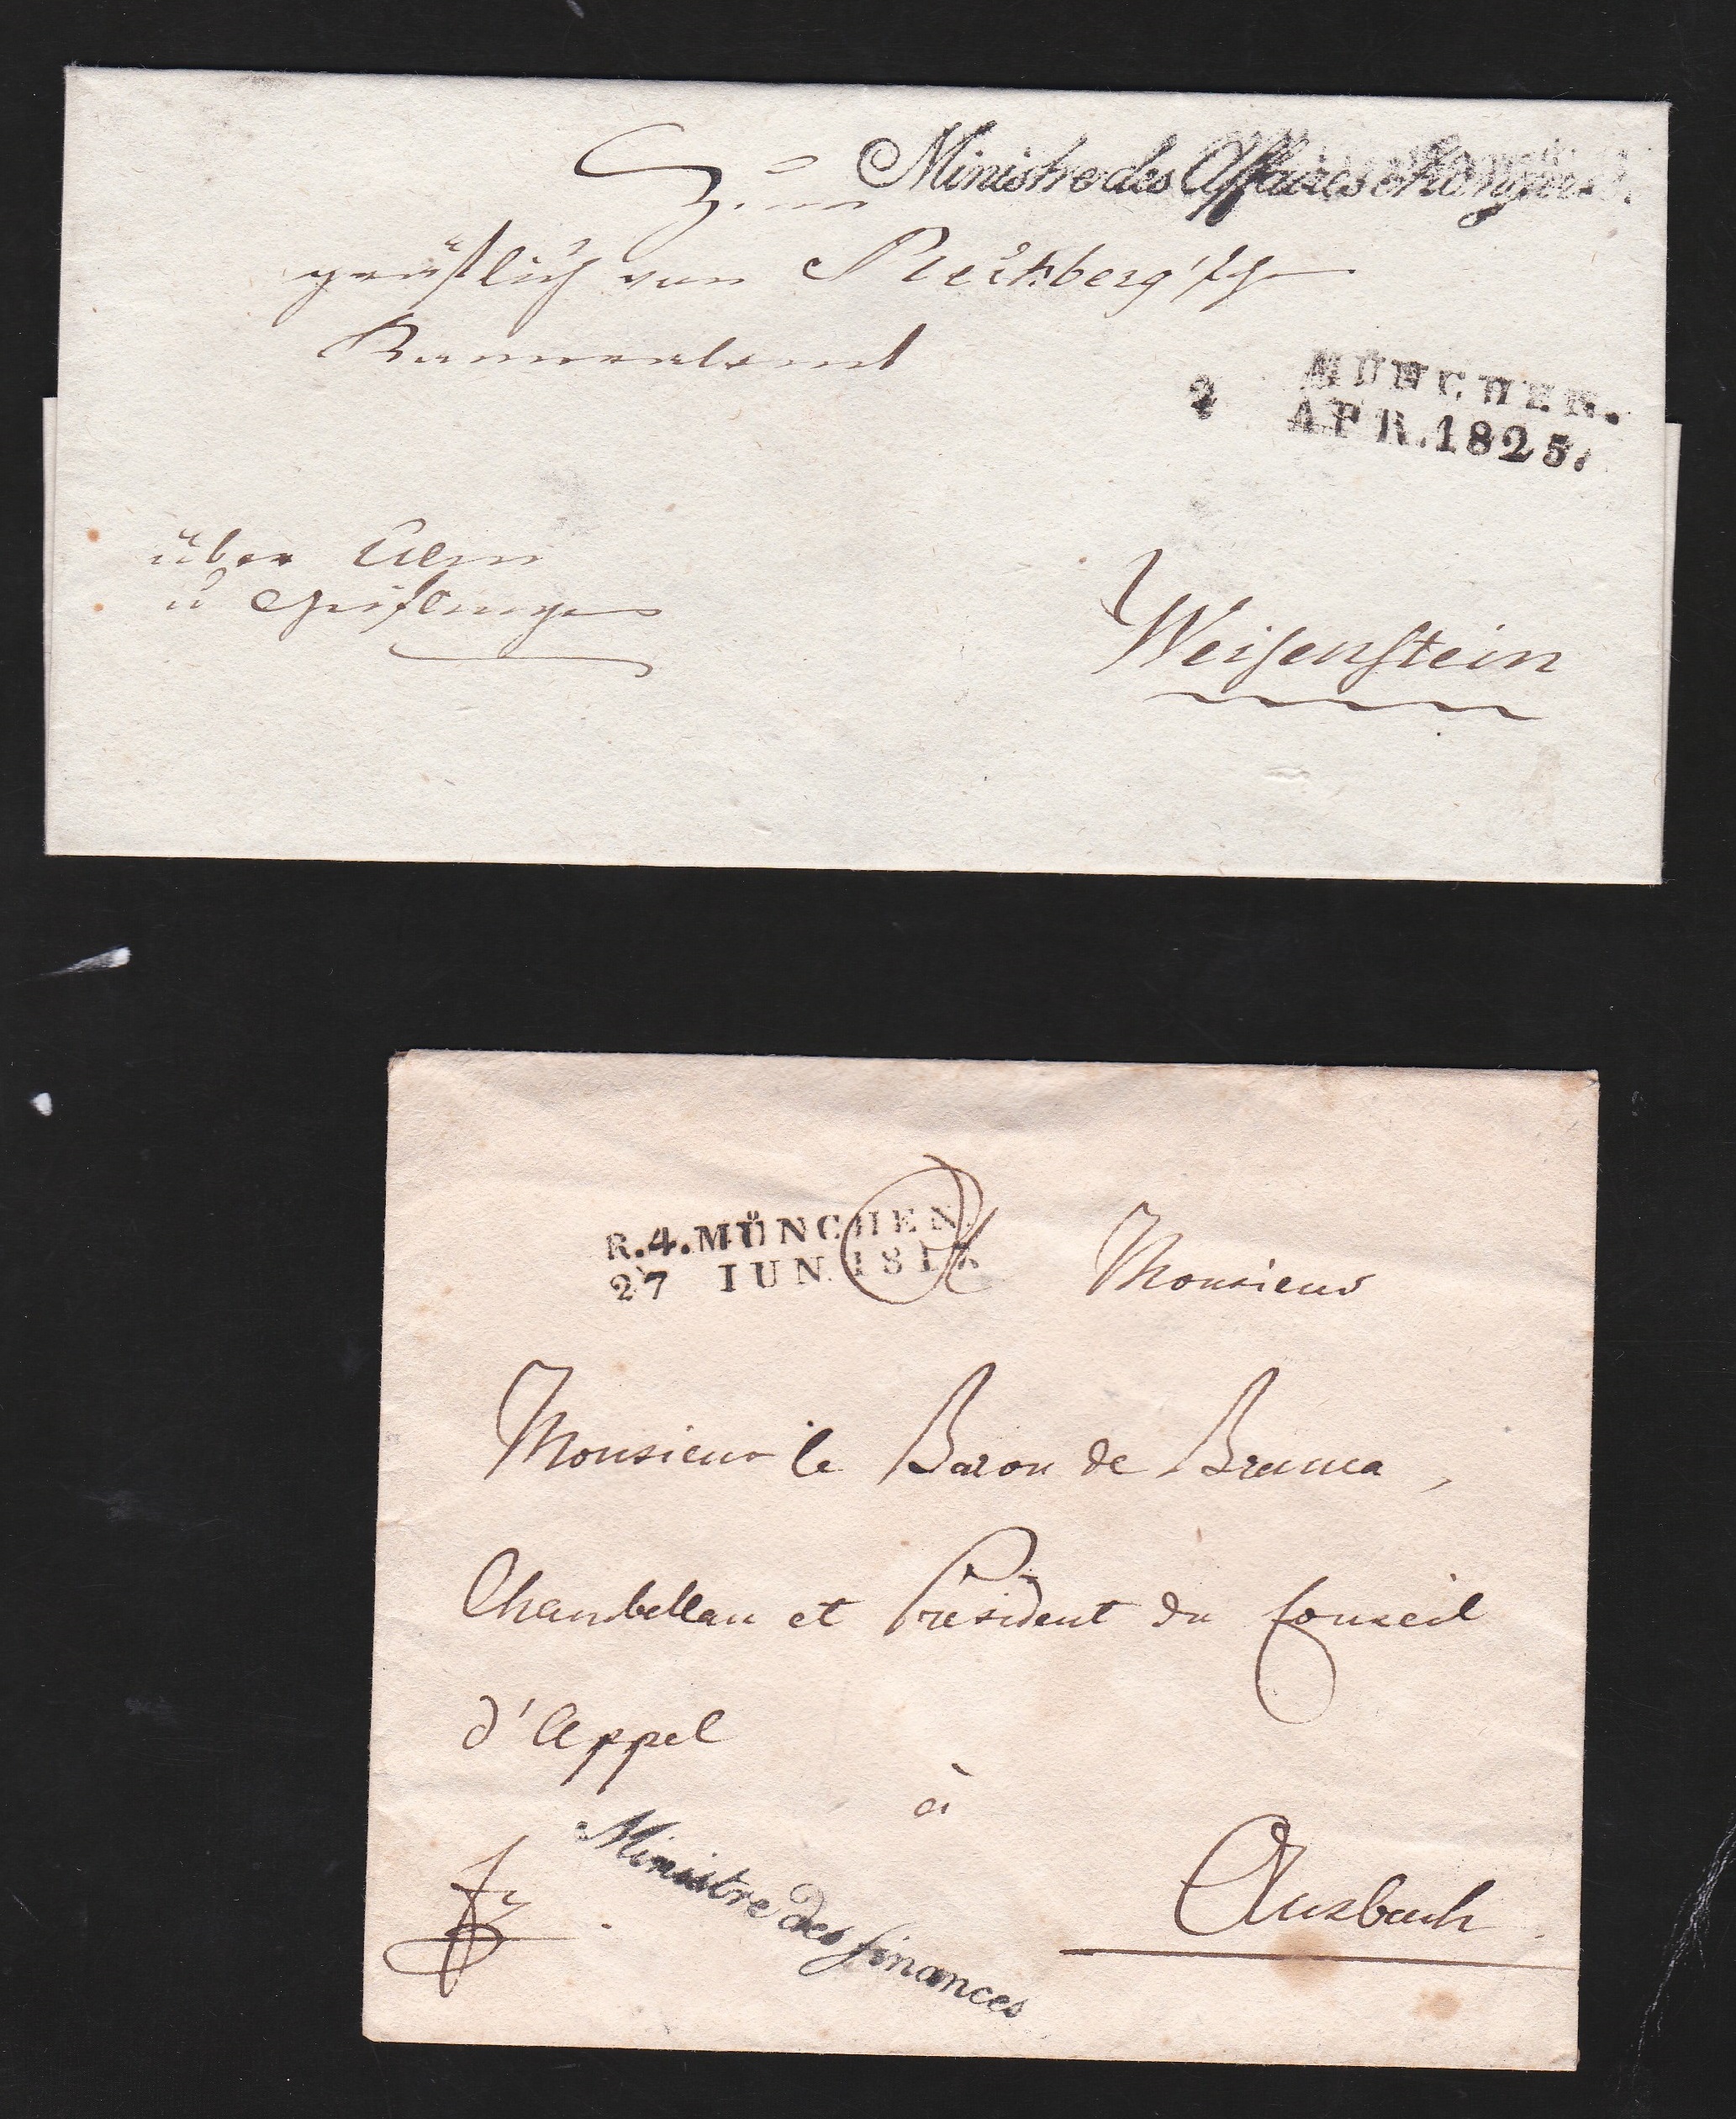 Zum
Ministre des Affaires etrangeres.
gräflich von Rechberg'sche
Rammeramt
2 MÜNCHEN.
APR.1825.
über Ulm
u Geislingen
Weisenstein
R.4.MÜNCHEN.
27 IUN. 181
Monsieur
Monsieur le Baron de Branca,
Chambellan et Président du Conseil
d'Appel
à
Ministre des finances
Ansbach